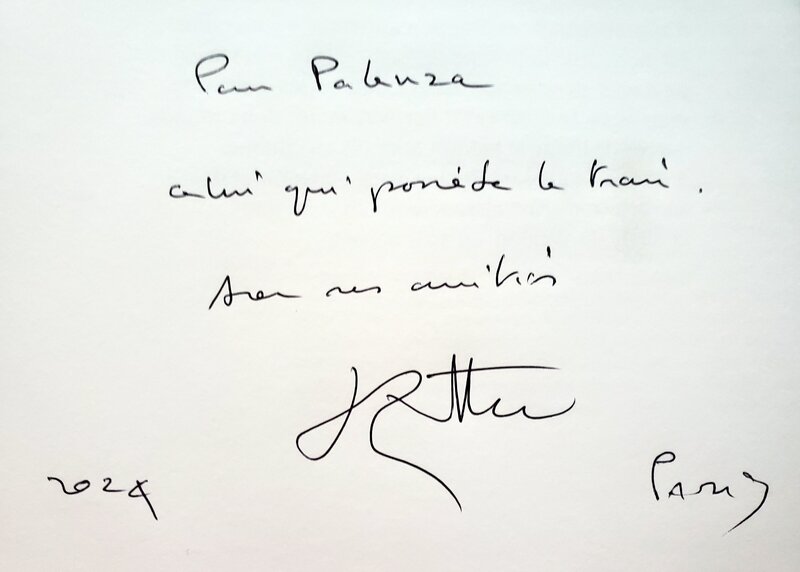 Pour Palenza
celui qui possède le trait.
Avec mes amitiés
2024 Paris